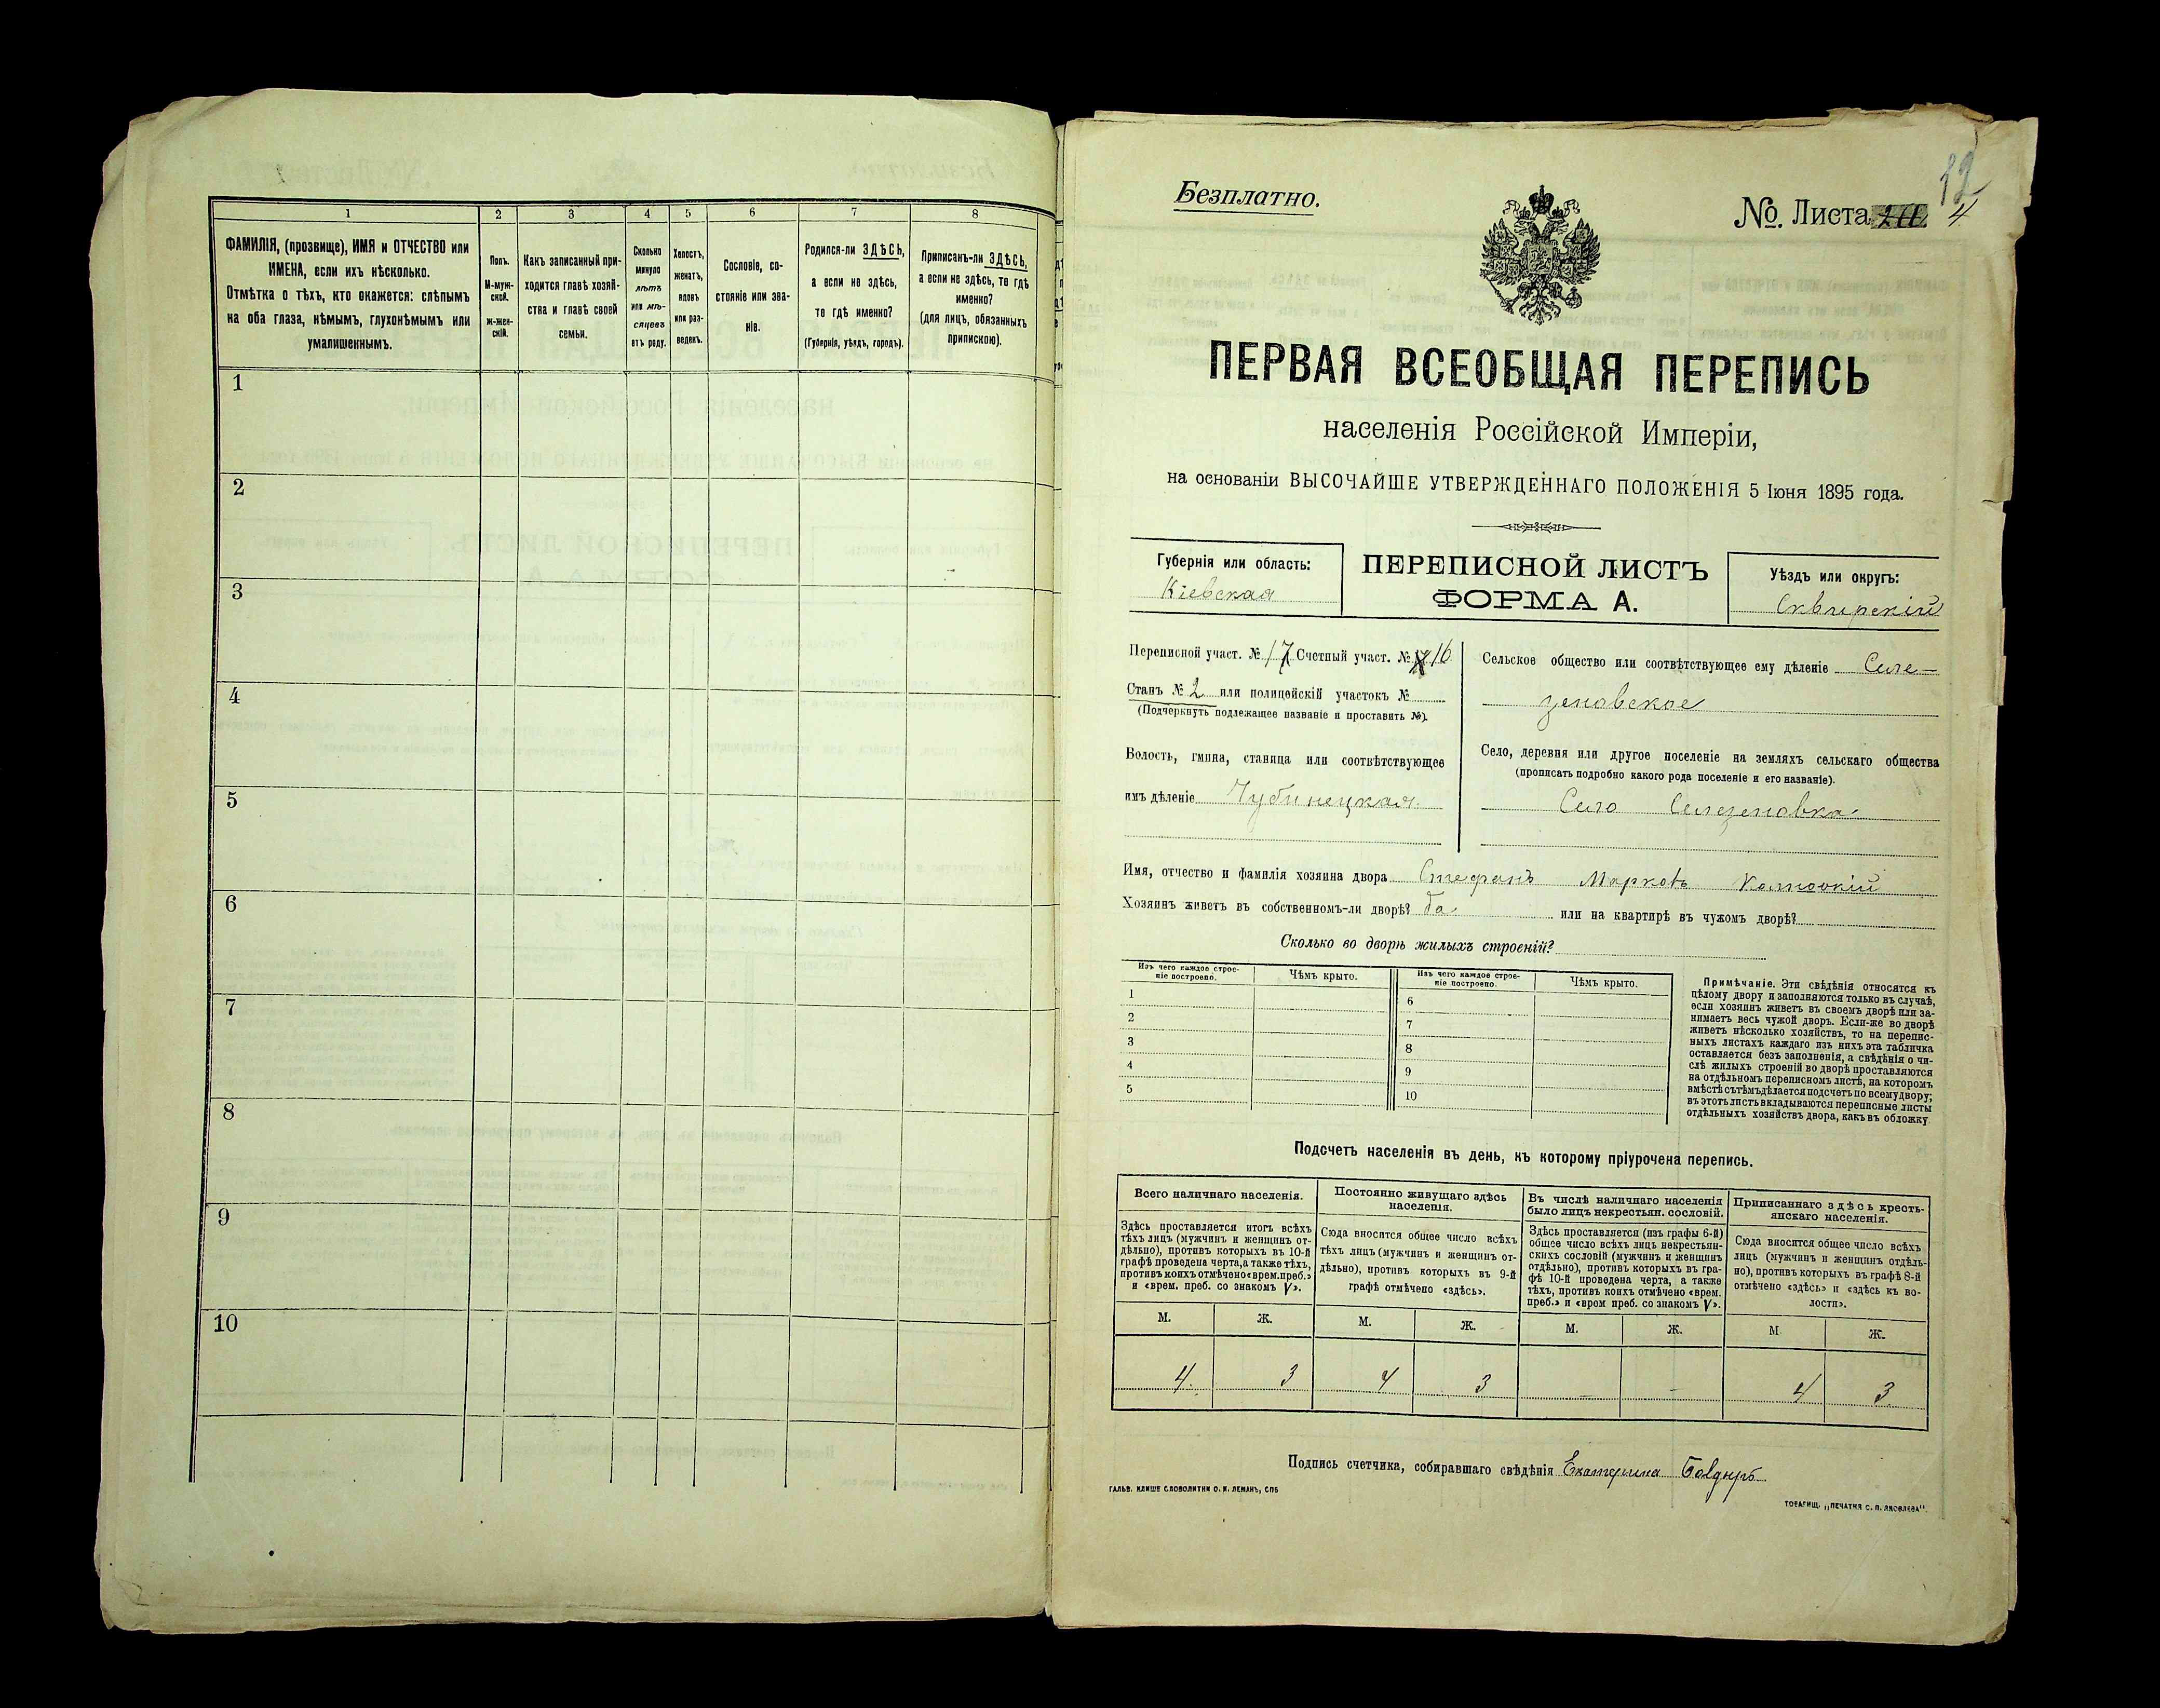 1
2
3
4
5
6
7
8
ФАМИЛІЯ, (прозвище), ИМЯ и ОТЧЕСТВО или
ИМЕНА, если ихъ нѣсколько.
Отмѣтка о тѣхъ, кто окажется: слѣпымъ
на оба глаза, нѣмымъ, глухонѣмымъ или
умалишеннымъ.
Полъ.
М-муж-
ской.
ж-жен-
скій.
Какъ записанный при-
ходится главѣ хозяй-
ства и главѣ своей
семьи.
Сколько
минуло
лѣтъ
или мѣ-
сяцевъ
отъ роду.
Холостъ,
женатъ,
вдовъ
или раз-
веденъ.
Сословіе, со-
стояніе или зва-
ніе.
Родился-ли ЗДѢСЬ,
а если не здѣсь,
то гдѣ именно?
(Губернія, уѣздъ, городъ).
Приписанъ-ли ЗДѢСЬ,
а если не здѣсь, то гдѣ
именно?
(для лицъ, обязанныхъ
припискою).
1
2
3
4
5
6
7
8
9
10
12
Безплатно.
№. Листа 4
ПЕРВАЯ ВСЕОБЩАЯ ПЕРЕПИСЬ
населенія Россійской Имперіи,
на основаніи ВЫСОЧАЙШЕ УТВЕРЖДЕННАГО ПОЛОЖЕНІЯ 5 Іюня 1895 года.
Губернія или область:
Кіевская
ПЕРЕПИСНОЙ ЛИСТЪ
ФОРМА А.
Уѣздъ или округъ:
Сквирскій
Переписной участ. № 17 Счетный участ. № 16
Станъ № 2 или полицейскій участокъ №
(Подчеркнуть подлежащее названіе и проставить №).
Волость, гмина, станица или соотвѣтствующее
имъ дѣленіе Чубинецкая.
Сельское общество или соотвѣтствующее ему дѣленіе Селе-
зеновское
Село, деревня или другое поселеніе на земляхъ сельскаго общества
(прописать подробно какого рода поселеніе и его названіе).
Село Селезеновка
Имя, отчество и фамилія хозяина двора Стефанъ Марковъ
Хозяинъ живетъ въ собственномъ-ли дворѣ? да. или на квартирѣ въ чужомъ дворѣ?
Сколько во дворѣ жилыхъ строеній?
Изъ чего каждое строе-
ніе построено.
Чѣмъ крыто.
Изъ чего каждое строе-
ніе построено.
Чѣмъ крыто.
1
2
3
4
5
6
7
8
9
10
Примѣчаніе. Эти свѣдѣнія относятся къ
цѣлому двору и заполняются только въ случаѣ,
если хозяинъ живетъ въ своемъ дворѣ или за-
нимаетъ весь чужой дворъ. Если-же во дворѣ
живетъ нѣсколько хозяйствъ, то на перепис-
ныхъ листахъ каждаго изъ нихъ эта табличка
оставляется безъ заполненія, а свѣдѣнія о чи-
слѣ жилыхъ строеній во дворѣ проставляются
на отдѣльномъ переписномъ листѣ, на которомъ
вмѣстѣ съ тѣмъ дѣлается подсчетъ по всему двору;
въ этотъ листъ вкладываются переписные листы
отдѣльныхъ хозяйствъ двора, какъ въ обложку
Подсчетъ населенія въ день, къ которому пріурочена перепись.
Всего наличнаго населенія.
Здѣсь проставляется итогъ всѣхъ
тѣхъ лицъ (мужчинъ и женщинъ от-
дѣльно), противъ которыхъ въ 10-й
графѣ проведена черта, а также тѣхъ,
противъ коихъ отмѣчено «врем. преб.»
и «врем. преб. со знакомъ V».
Постоянно живущаго здѣсь
населенія.
Сюда вносится общее число всѣхъ
тѣхъ лицъ (мужчинъ и женщинъ от-
дѣльно), противъ которыхъ въ 9-й
графѣ отмѣчено «здѣсь».
Въ числѣ наличнаго населенія
было лицъ некрестьян. сословій.
Здѣсь проставляется (изъ графы 6-й)
общее число всѣхъ лицъ некрестьян-
скихъ сословій (мужчинъ и женщинъ
отдѣльно), противъ которыхъ въ гра-
фѣ 10-й проведена черта, а также
тѣхъ, противъ коихъ отмѣчено «врем.
преб.» и «врем преб. со знакомъ V».
Приписаннаго здѣсь кресть-
янскаго населенія.
Сюда вносится общее число всѣхъ
лицъ (мужчинъ и женщинъ отдѣль-
но), противъ которыхъ въ графѣ 8-й
отмѣчено «здѣсь» и «здѣсь къ во-
лости».
М. Ж. М. Ж. М. Ж. М. Ж.
4 3 4 3 - - 4 3
Подпись счетчика, собиравшаго свѣдѣнія Екатерина
ГАЛЬВ. КЛИШЕ СЛОВОЛИТНИ О. И. ЛЕМАНЪ, СПБ
ТОВАРИЩ. „ПЕЧАТНЯ С. П. ЯКОВЛЕВА".